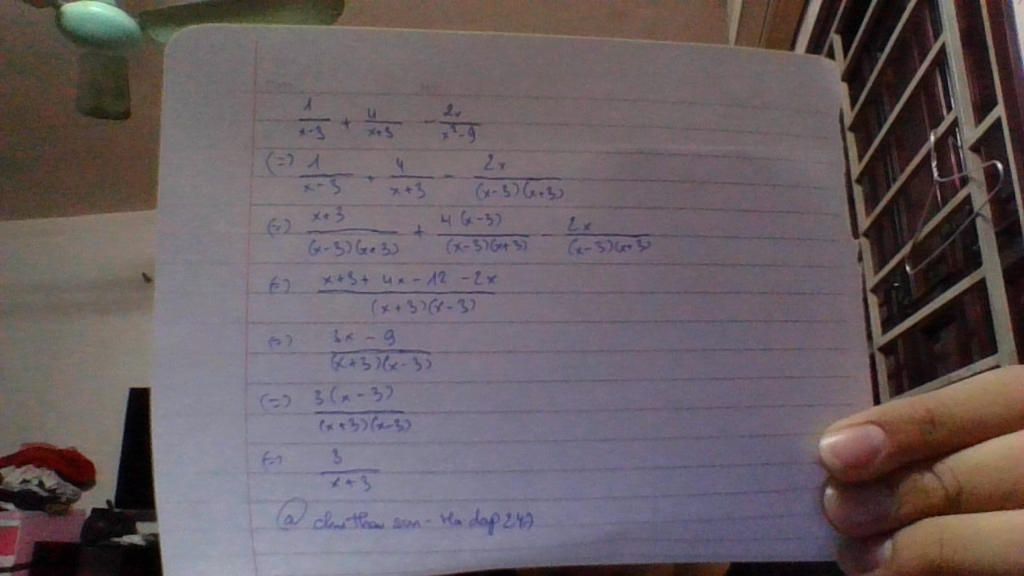 1/(x-3) + 4/(x+3) - 2x/(x²-9)
(=) 1/(x-3) + 4/(x+3) - 2x/((x-3)(x+3))
(=) (x+3)/((x-3)(x+3)) + 4(x-3)/((x-3)(x+3)) - 2x/((x-3)(x+3))
(=) (x+3+4x-12-2x)/((x+3)(x-3))
(=) (3x-9)/((x+3)(x-3))
(=) 3(x-3)/((x+3)(x-3))
(=) 3/(x+3)
@ - Hoidap247